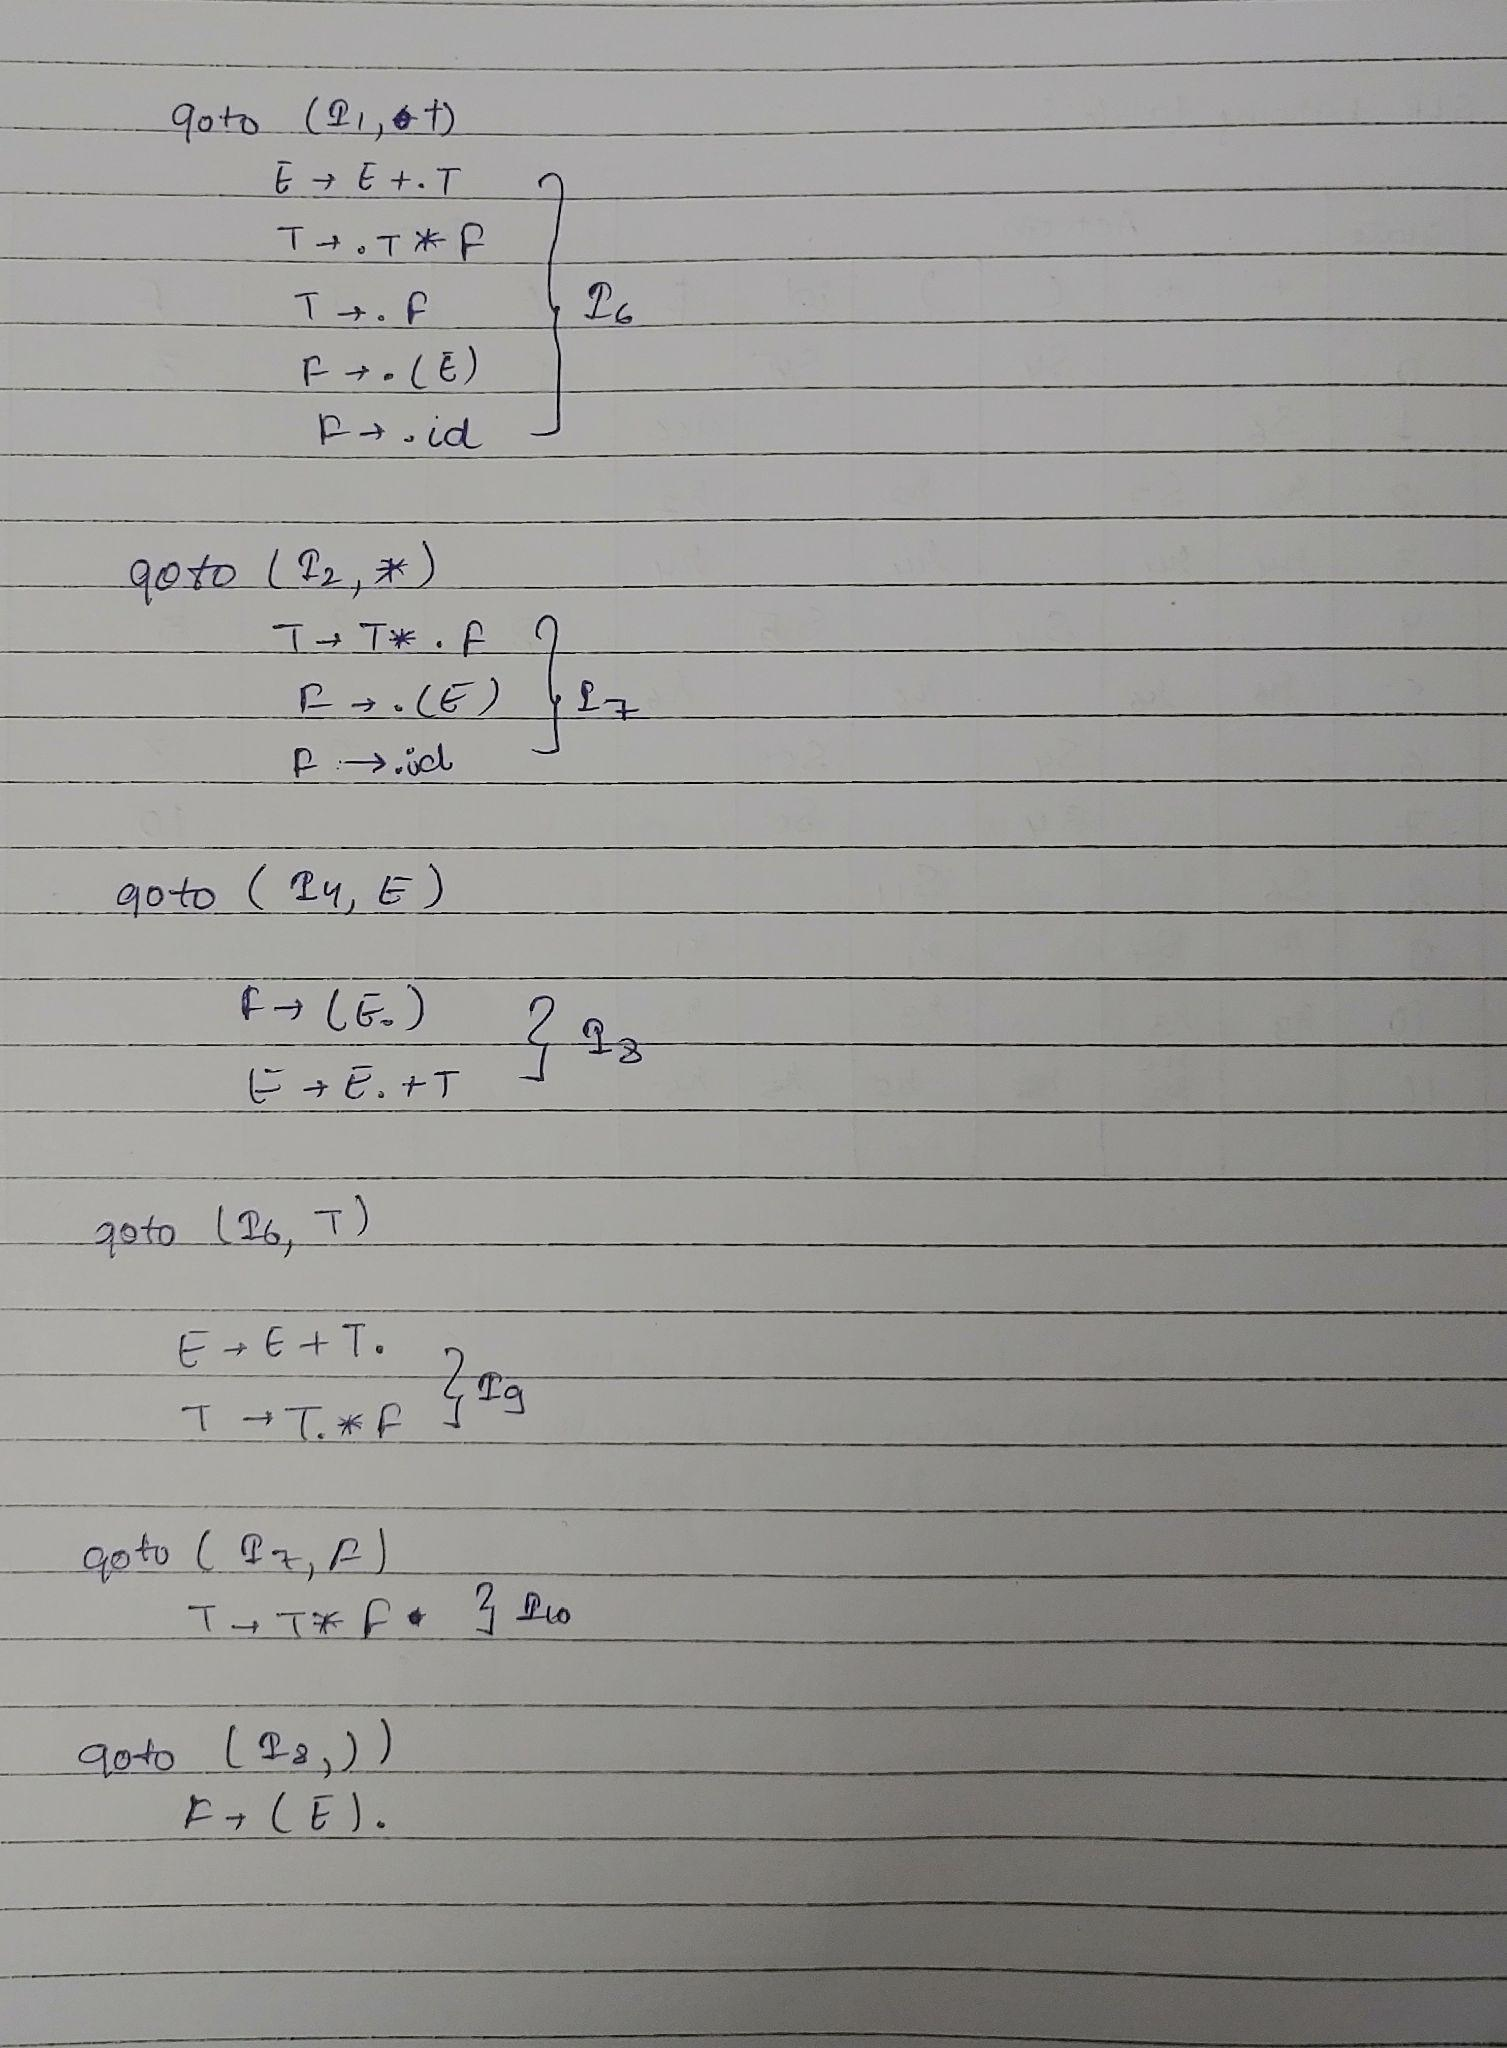 goto (I1, +)
E → E +. T
T → . T * F
T → . F
F → . (E)
F → . id
I6
goto (I2, *)
T → T * . F
F → . (E)
F → . id
I7
goto (I4, E)
F → (E.)
E → E. + T
I8
goto (I6, T)
E → E + T.
T → T. * F
I9
goto (I7, F)
T → T * F . } I10
goto (I8, ))
F → (E).